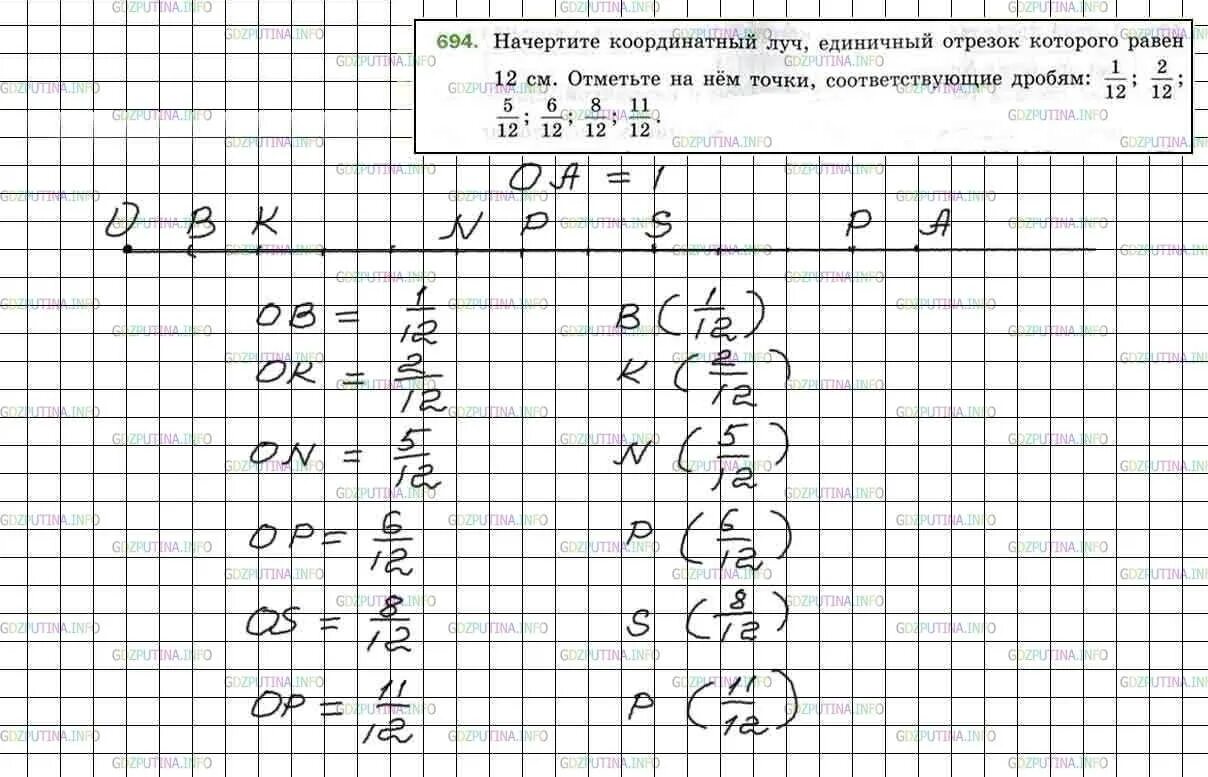 694. Начертите координатный луч, единичный отрезок которого равен
12 см. Отметьте на нём точки, соответствующие дробям: 1/12; 2/12;
5/12; 6/12; 8/12; 11/12.
OA = 1
O B K N P S P A
OB = 1/12 B (1/12)
OK = 2/12 K (2/12)
ON = 5/12 N (5/12)
OP = 6/12 P (6/12)
OS = 8/12 S (8/12)
OP = 11/12 P (11/12)
GDZPUTINA.INFO